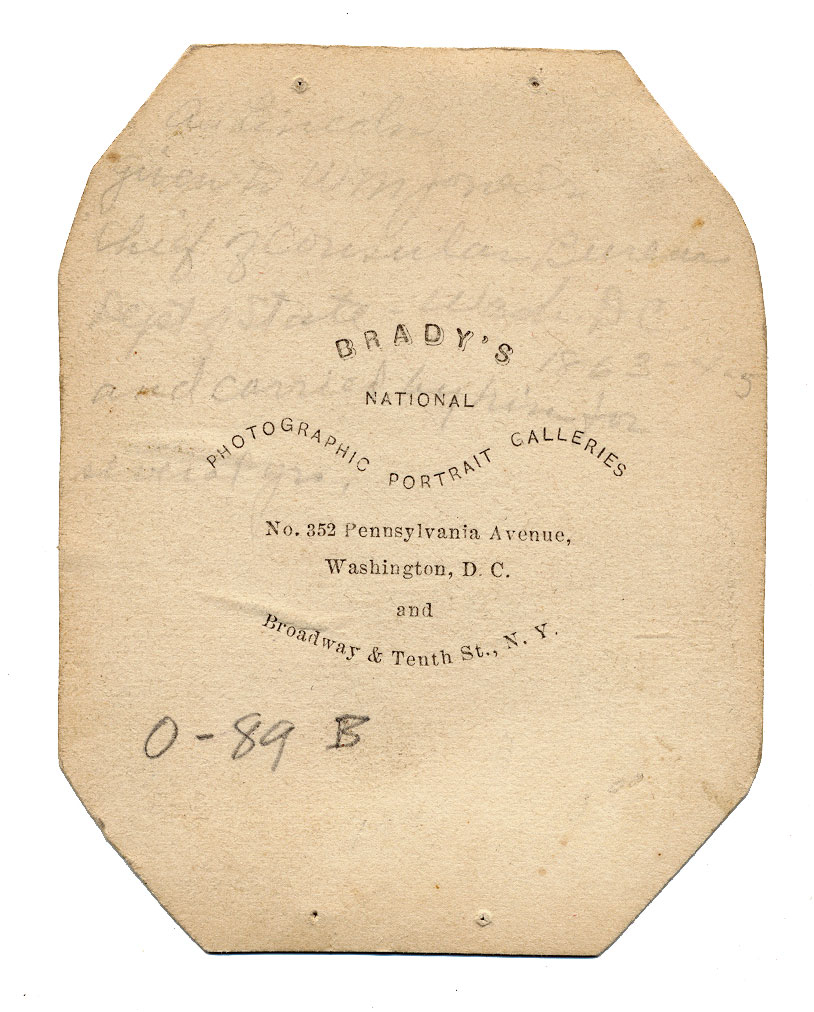 A. Lincoln
given to
Chief of Consular Bureau
Dept of State Wash D.C.
1863-4-5
and carried by him for
yrs.
BRADY'S
NATIONAL
PHOTOGRAPHIC PORTRAIT GALLERIES
No. 352 Pennsylvania Avenue,
Washington, D. C.
and
Broadway & Tenth St., N. Y.
O-89 B